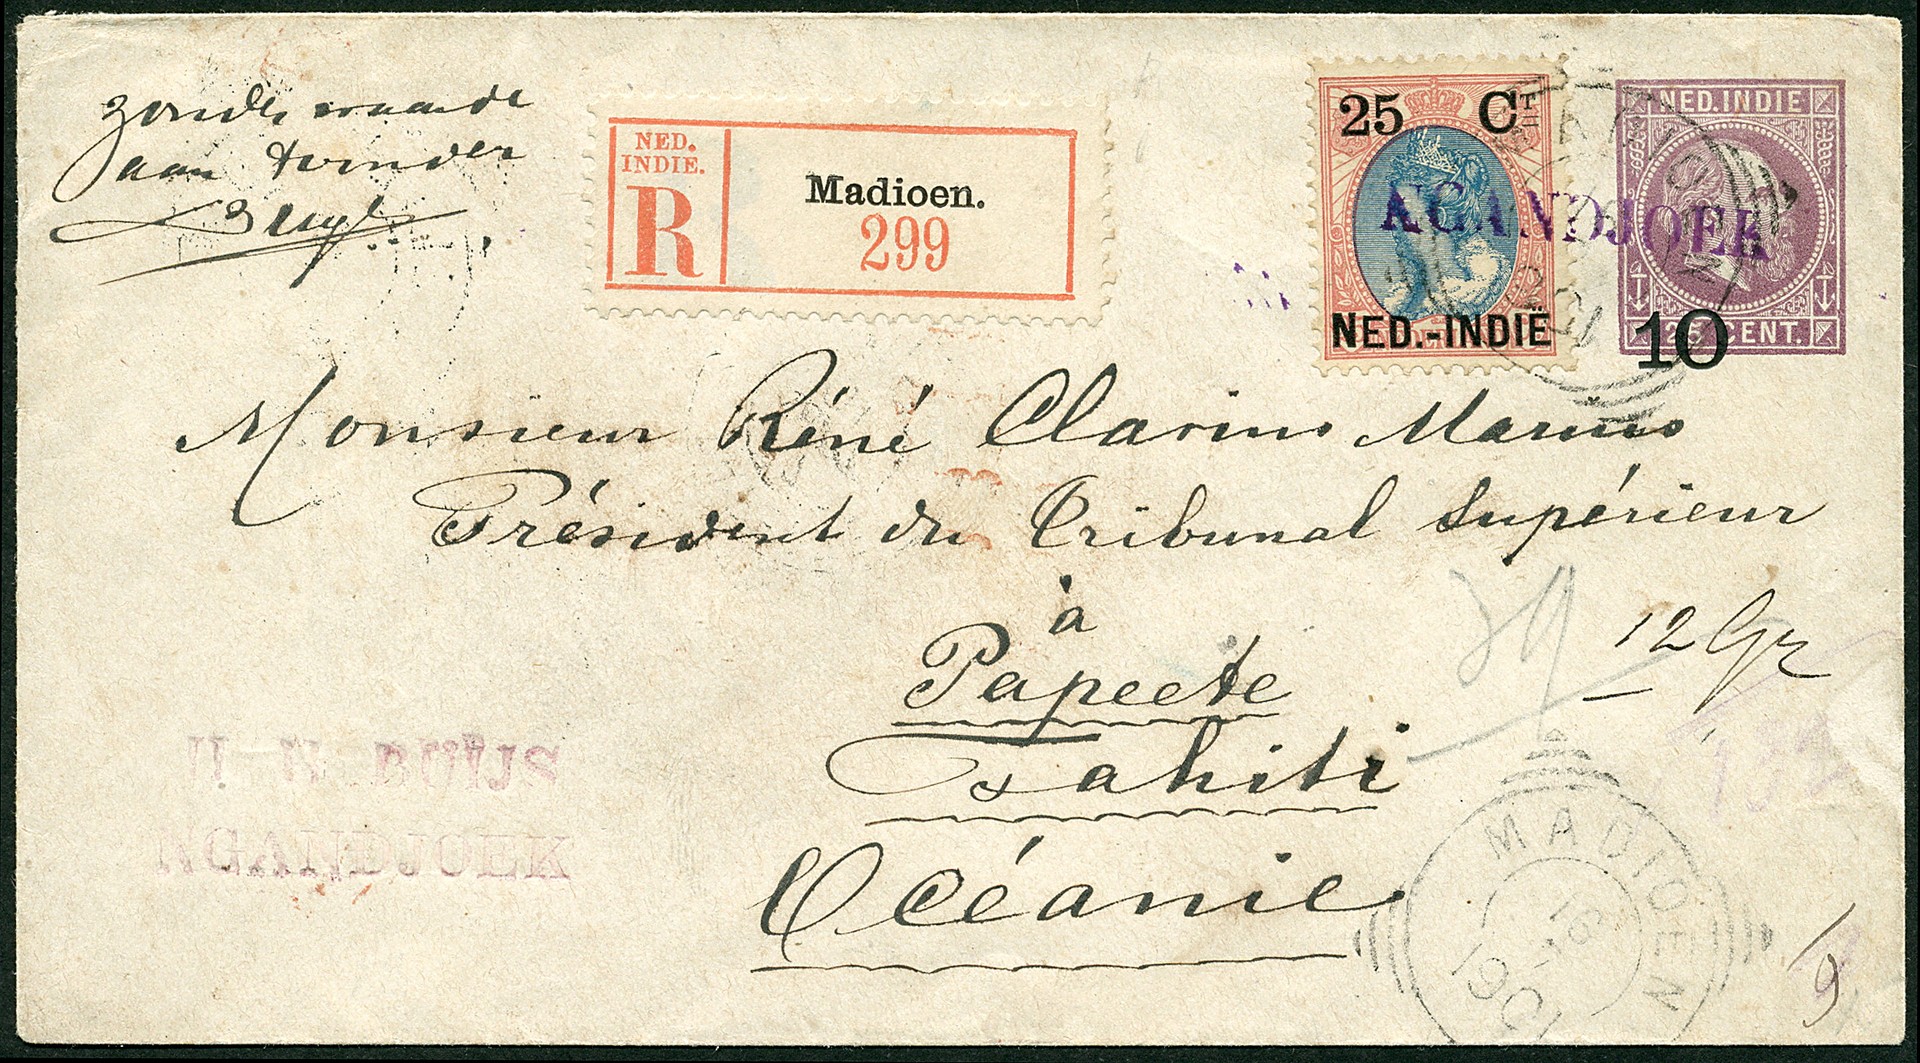 zonder waarde
aan
Buijs
NED.
INDIE.
R
Madioen.
299
25 CT
NED.-INDIË
NED.INDIE
25 CENT.
10
NGANDJOEK
Monsieur Réné Clarius Marius
Président du Tribunal Supérieur
à
Papeete
Tahiti
Océanie
12 Gr
H W BUIJS
NGANDJOEK
MADIOEN
1901